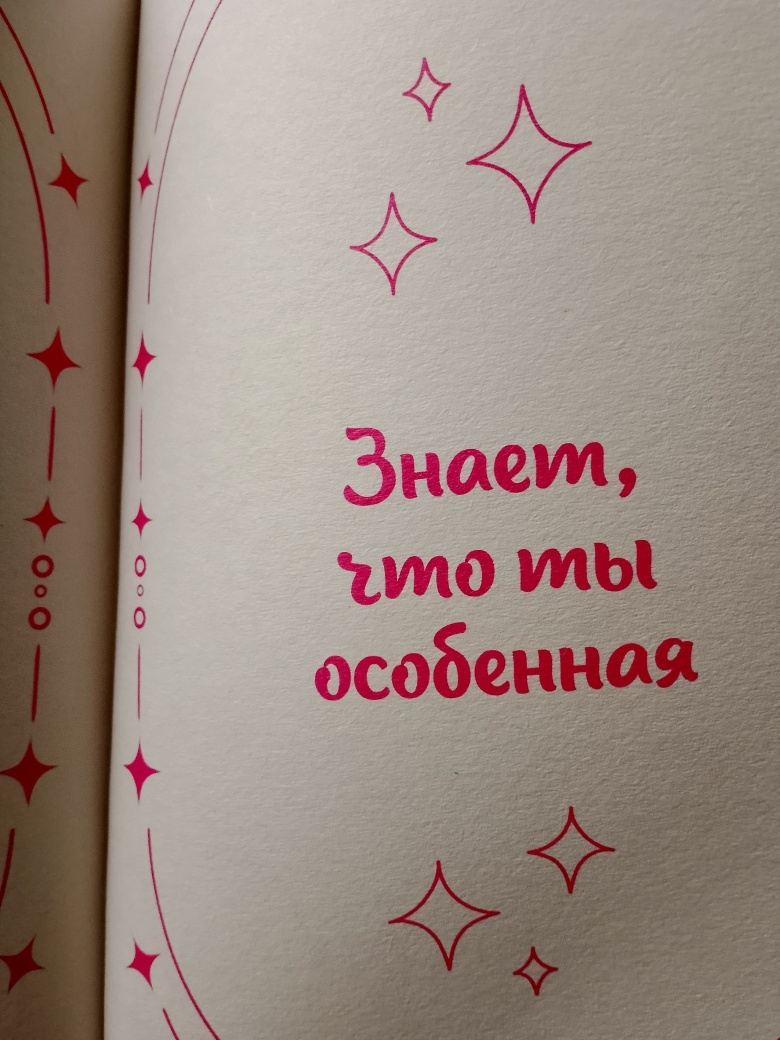 Знает,
что ты
особенная